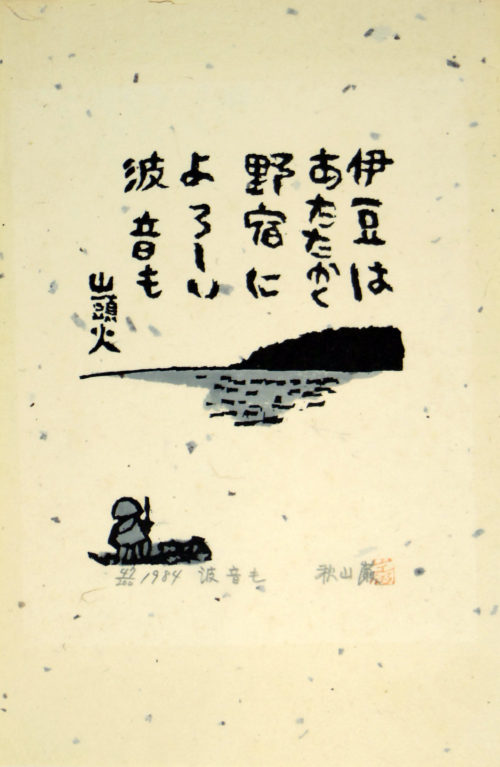 伊豆は
あたたかく
野宿に
よろしい
波音も
山頭火
1984 波音も 秋山巌